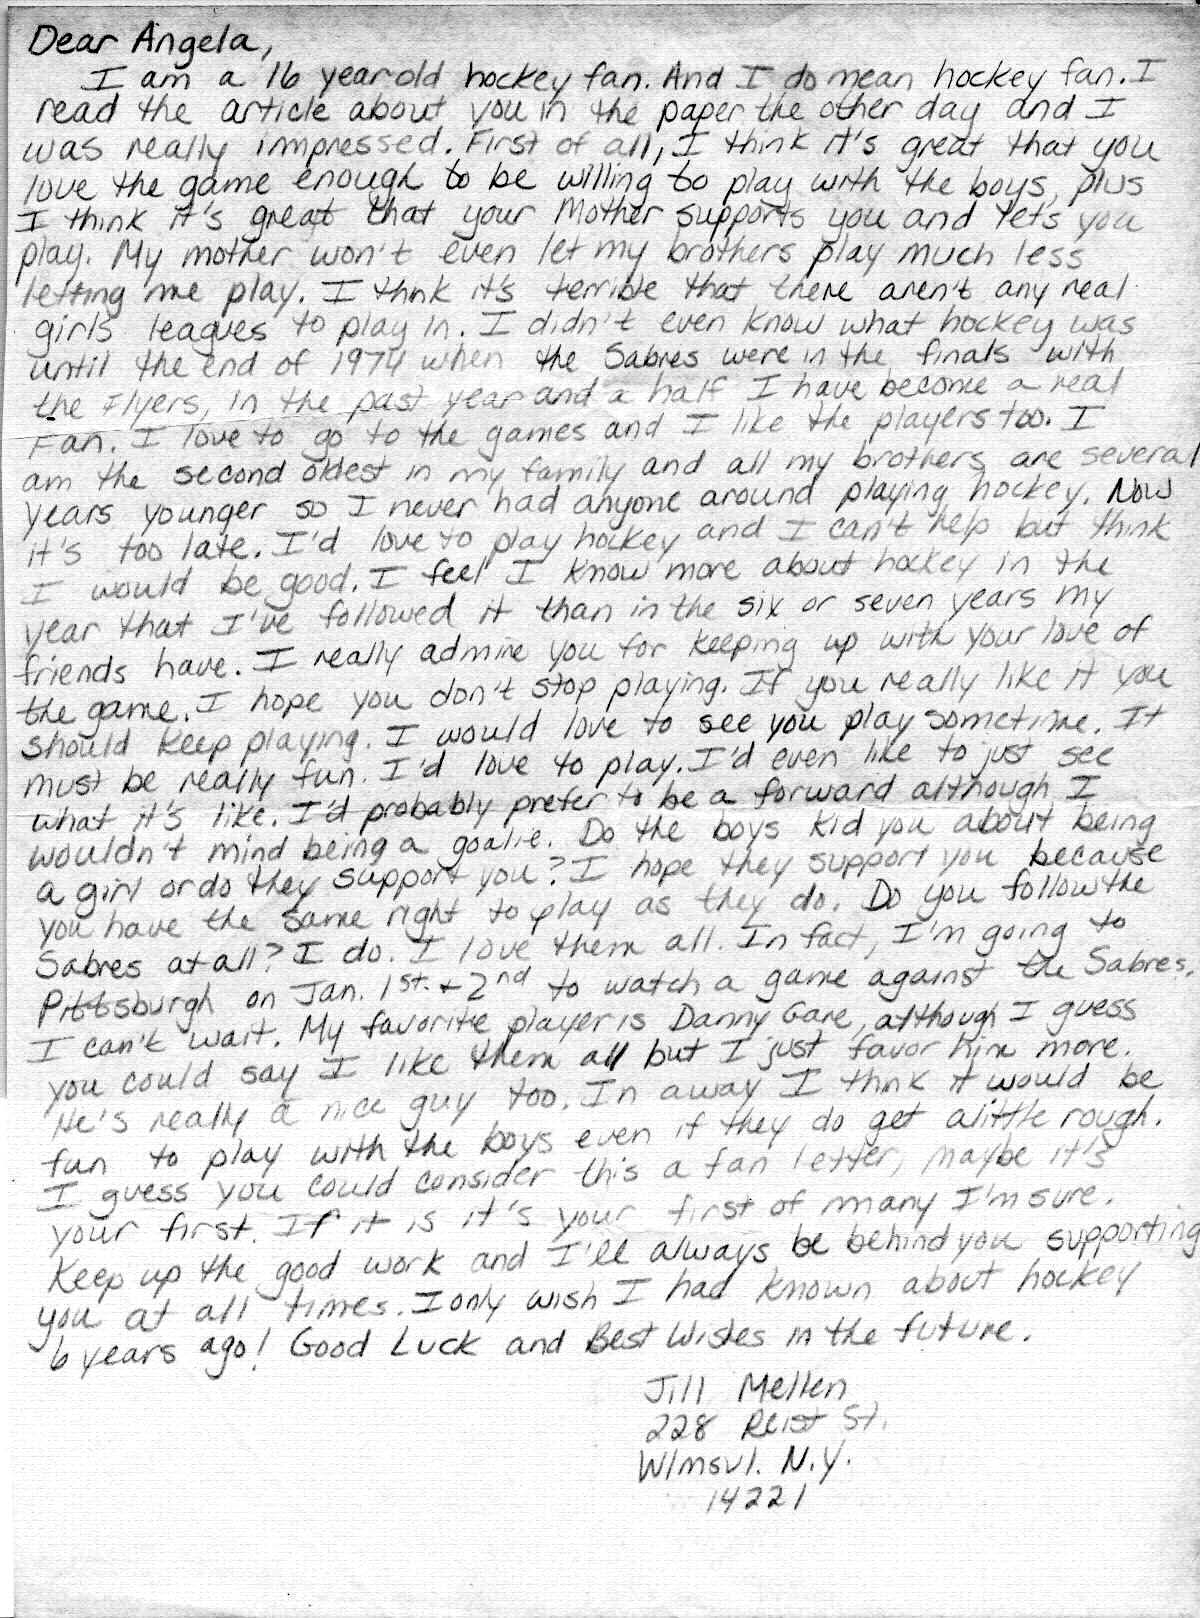 Dear Angela,
I am a 16 year old hockey fan. And I do mean hockey fan. I
read the article about you in the paper the other day and I
was really impressed. First of all, I think it's great that you
love the game enough to be willing to play with the boys, plus
I think it's great that your Mother supports you and lets you
play. My mother won't even let my brothers play much less
letting me play. I thnk it's terrible that there aren't any real
girls leagues to play in. I didn't even know what hockey was
until the end of 1974 when the Sabres were in the finals with
the Flyers, in the past year and a half I have become a real
Fan. I love to go to the games and I like the players too. I
am the second oldest in my family and all my brothers are several
years younger so I never had anyone around playing hockey. Now
it's too late. I'd love to play hockey and I can't help but think
I would be good. I feel I know more about hockey in the
year that I've followed it than in the six or seven years my
friends have. I really admire you for keeping up with your love of
the game. I hope you don't stop playing. If you really like it you
should keep playing. I would love to see you play sometime. It
must be really fun. I'd love to play. I'd even like to just see
what it's like. I'd probably prefer to be a forward although I
wouldn't mind being a goalie. Do the boys kid you about being
a girl or do they support you? I hope they support you because
you have the same right to play as they do. Do you follow the
Sabres at all? I do. I love them all. In fact, I'm going to
Pittsburgh on Jan. 1st. + 2nd to watch a game against the Sabres.
I can't wait. My favorite player is Danny Gare, although I guess
you could say I like them all but I just favor him more.
He's really a nice guy too. In a way I think it would be
fun to play with the boys even if they do get a little rough.
I guess you could consider this a fan letter, maybe it's
your first. If it is it's your first of many I'm sure.
Keep up the good work and I'll always be behind you supporting
you at all times. I only wish I had known about hockey
6 years ago! Good Luck and Best Wishes in the future.
Jill Mellen
228 Reist St.
Wlmsvl. N.Y.
14221